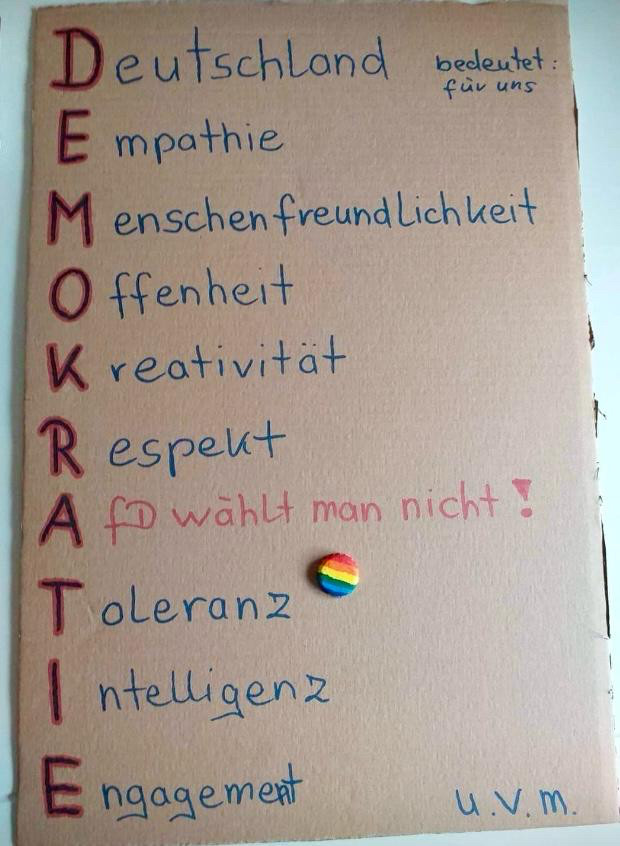 Deutschland bedeutet:
für uns
Empathie
Menschenfreundlichkeit
Offenheit
Kreativität
Respekt
AfD wählt man nicht!
Toleranz
Intelligenz
Engagement u.v.m.